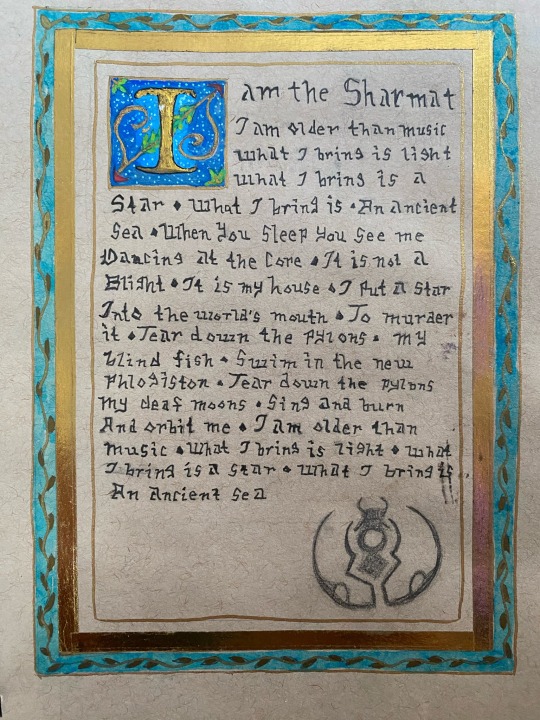 I am the Sharmat
I am older than music
what I bring is light
what I bring is a
Star • what I bring is • An ancient
Sea • When you sleep you see me
Dancing at the Core • It is not a
Blight • It is my house • I put a star
Into the world's mouth • To murder
it • Tear down the pylons • my
blind fish • Swim in the new
Phlogiston • Tear down the pylons
My deaf moons • Sing and burn
And orbit me • I am older than
music • What I bring is light • what
I bring is a star • what I bring is
An Ancient Sea